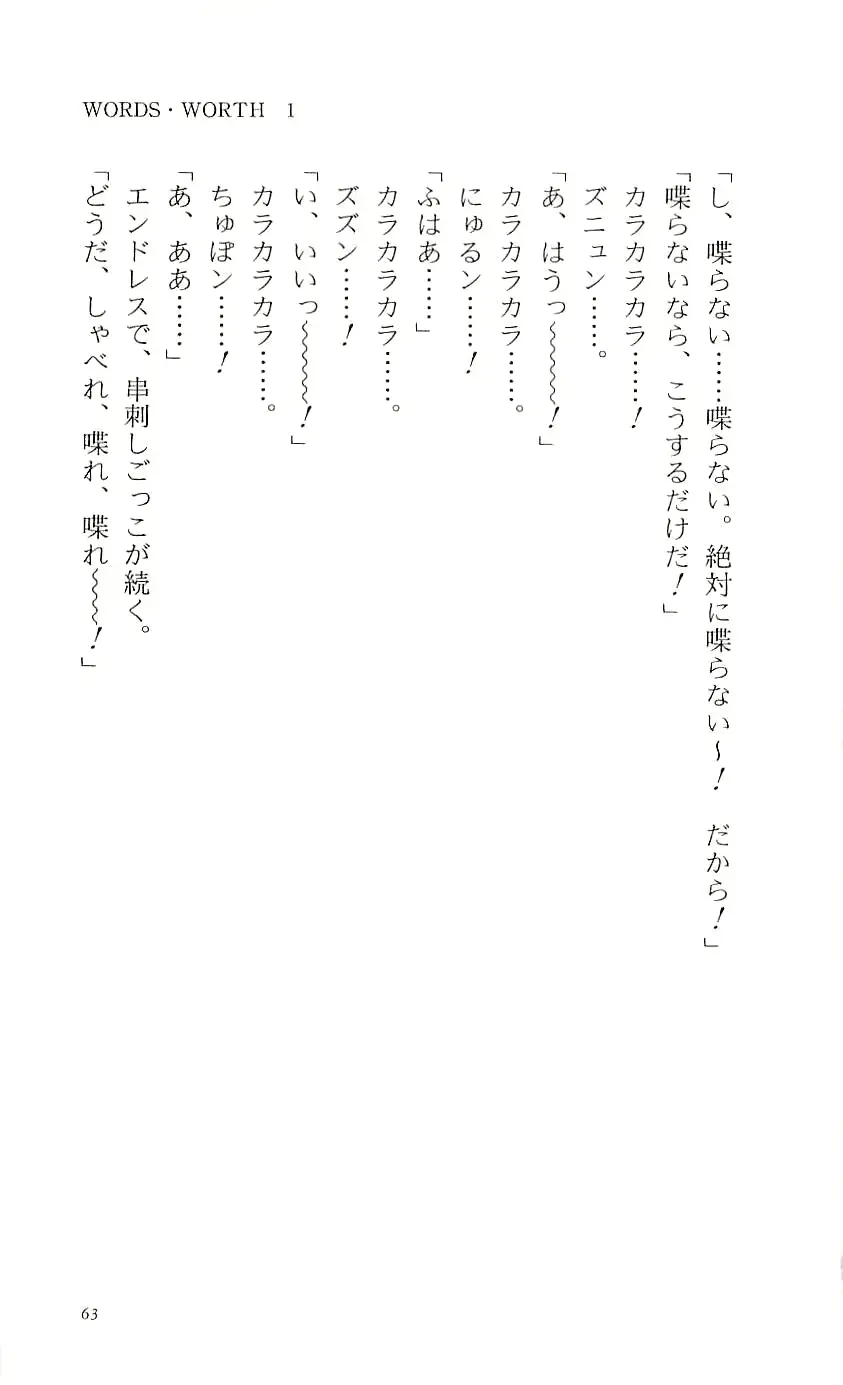 WORDS・WORTH 1
「し、喋らない……喋らない。絶対に喋らない～！　だから！」
「喋らないなら、こうするだけだ！」
カラカラカラ……！
ズニュン……。
「あ、はうっ～～～！」
カラカラカラ……。
にゅるン……！
「ふはあ……」
カラカラカラ……。
ズズン……！
「い、いいっ～～～！」
カラカラカラ……。
ちゅぽン……！
「あ、ああ……」
エンドレスで、串刺しごっこが続く。
「どうだ、しゃべれ、喋れ、喋れ～～！」
63